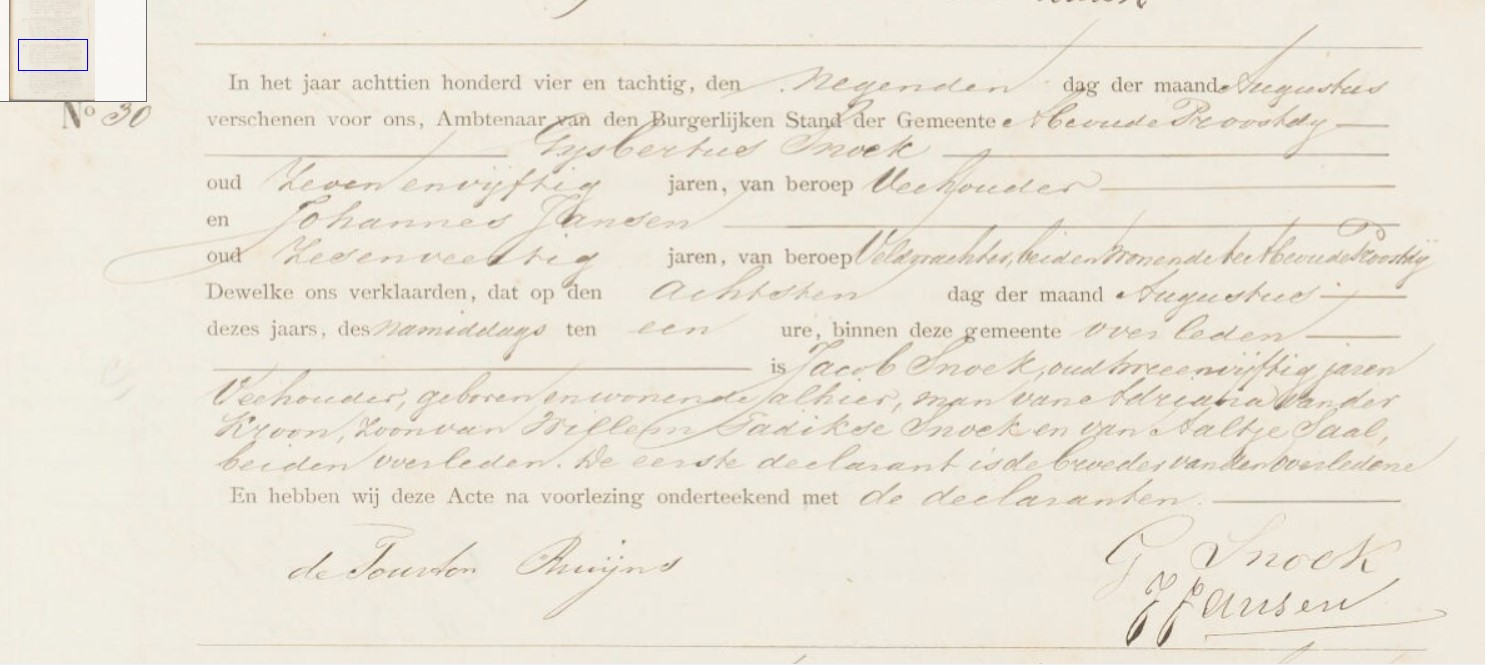 In het jaar achttien honderd vier en tachtig, den negenden dag der maand Augustus
No 30
verschenen voor ons, Ambtenaar van den Burgerlijken Stand der Gemeente Abcoude Proostdy
Gysbertus Snoek
oud Zeven en vijftig jaren, van beroep Veehouder
en Johannes Jansen
oud Zesenveertig jaren, van beroep Veldwachter, beiden wonende te Abcoude Proostdij
Dewelke ons verklaarden, dat op den Achtsten dag der maand Augustus
dezes jaars, des namiddags ten een ure, binnen deze gemeente overleden
is Jacob Snoek, oud tweeenvijftig jaren
Veehouder, geboren en wonende alhier, man van Adriana van der
Kroon, Zoon van Willem Snoek en van Aaltje Saal,
beiden overleden. De eerste declarant is de broeder van den overledene
En hebben wij deze Acte na voorlezing onderteekend met de declaranten.
de Tourton Bruijns
G Snoek
J Jansen